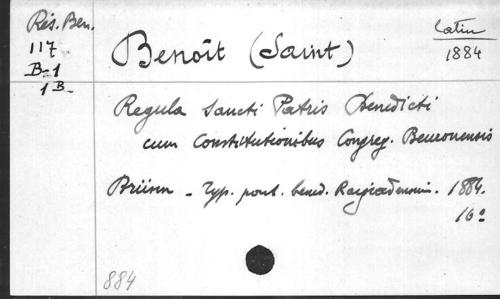 Rés. Ben.
117
B-1
1 B-
latin
1884
Benoît (Saint)
Regula Sancti Patris Benedicti
cum Constitutionibus Congreg. Beuronensis
Brünn - Typ. pont. bened. Raigradensium. 1884.
16º
884